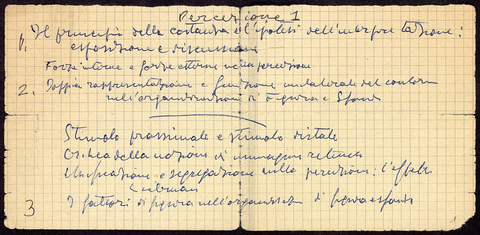 Percezione 1
1. Il principio della costanza e l'ipotesi dell'interpretazione:
esposizione e discussione
Forze interne e forze esterne nella percezione
2. Doppia rappresentazione e funzione unilaterale del contorno
nell'organizzazione di Figura e Sfondo
Stimolo prossimale e stimolo distale
Critica della nozione di immagine retinica
Unificazione e segregazione nella percezione: l'effetto
Liebmann
3 I fattori di figura nell'organizzazione di figura e sfondo